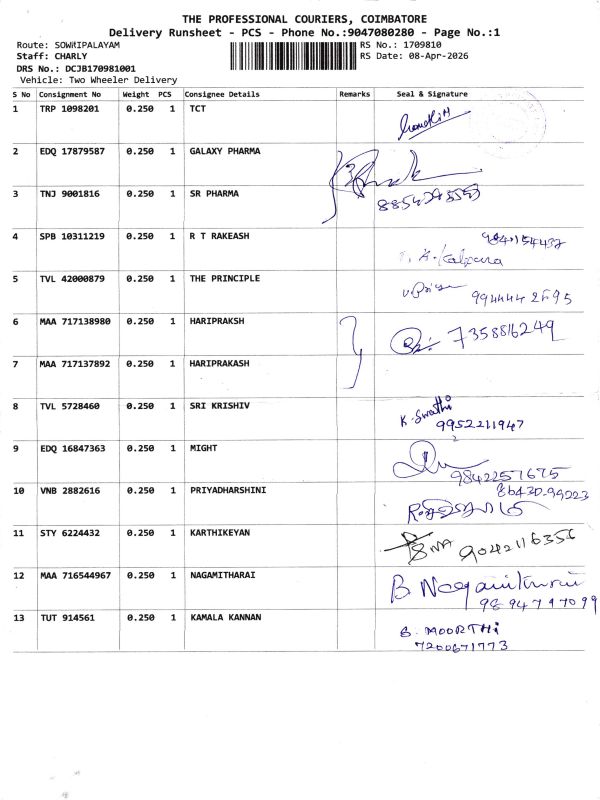 THE PROFESSIONAL COURIERS, COIMBATORE
Delivery Runsheet - PCS - Phone No.:9047080280 - Page No.:1
Route: SOWRIPALAYAM
RS No.: 1709810
Staff: CHARLY
RS Date: 08-Apr-2026
DRS No.: DCJB170981001
Vehicle: Two Wheeler Delivery
S No Consignment No Weight PCS Consignee Details Remarks Seal & Signature
1 TRP 1098201 0.250 1 TCT
2 EDQ 17879587 0.250 1 GALAXY PHARMA
3 TNJ 9001816 0.250 1 SR PHARMA
4 SPB 10311219 0.250 1 R T RAKEASH
Kalpana
5 TVL 42000879 0.250 1 THE PRINCIPLE
994444 2595
6 MAA 717138980 0.250 1 HARIPRAKSH
7358816249
7 MAA 717137892 0.250 1 HARIPRAKASH
8 TVL 5728460 0.250 1 SRI KRISHIV
K. Swathi
9952211947
9 EDQ 16847363 0.250 1 MIGHT
9842257675
10 VNB 2882616 0.250 1 PRIYADHARSHINI
11 STY 6224432 0.250 1 KARTHIKEYAN
9042116356
12 MAA 716544967 0.250 1 NAGAMITHARAI
B
9894797099
13 TUT 914561 0.250 1 KAMALA KANNAN
B. MOORTHi
7200671773